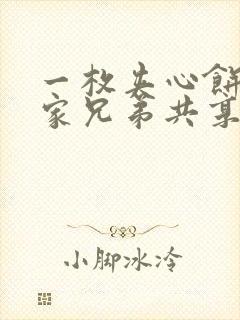 一枚夹心饼
家兄弟共享
小脚冰冷